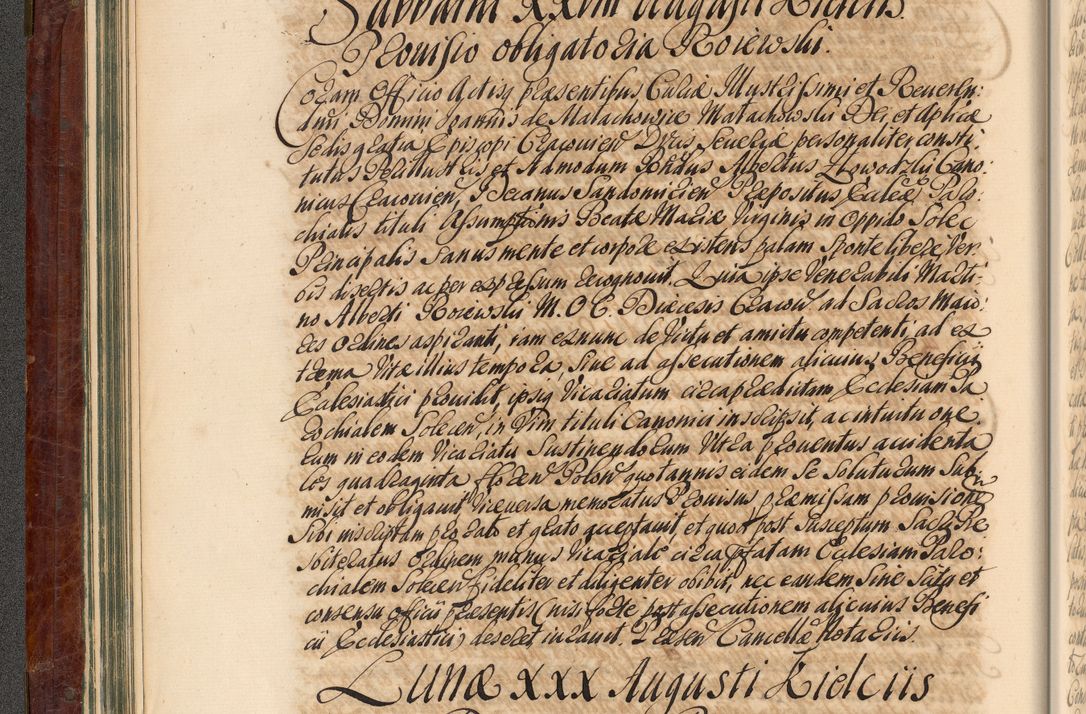 Sabbathi XXVIII Augusti Kielciis.
Provisio obligatoria Roiewski.
Coram Officio Actisq præsentibus Curiæ Illustrissimi et Reveren:
dmi Domini Joannis de Malachowice Małachowski Dei, et Aplicæ
Sedis gratia Episcopi Cracovien Ducis Severiæ personaliter consti:
tutus Perillustris et Admodum Rndus Albertus Cano:
nicus Cracovien, Decanus Sandomirien Præpositus Eccleæ Paro:
chialis tituli Assumptionis Beatæ Mariæ Virginis in Oppido Solec
Principalis Sanus mente et corpore existens palam sponte libere Ver:
bis disertis ac per expressum recognovit. Quia ipse Venerabili Marti:
no Alberti Roiewski M. O. C. Diæcesis Cracow ad Sacros Maio:
res Ordines aspiranti, iam exnunc de Victu et amictu competenti, ad ex
trema Vitæ illius tempora, sive ad assecutionem alicuius Beneficii
Eclesiastici providit, ipsiq Vicariatum circa prædictam Ecclesiam Pa
rochialem Solecen, in Vim tituli Canonici inscripsit, ac intuitu one
rum in eodem Vicariatu Sustinendorum Ultra proventus accidenta
les quadraginta floren Polon quotannis eidem se soluturum Sub:
misit et obligavit Viceversa memoratus Provisus præmissam provisionem
Sibi inscriptam pro rato et grato acceptavit, et quod post Susceptum Sacrū Pre
sbiteratus Ordinem munus Vicariale circa pfatam Ecclesiam Paro:
chialem Solecen fideliter et diligenter obibit, nec eandem Sine Scitu et
consensu officii præsentis (nisi forte post assecutionem alicuius Benefi
cii Ecclesiastici) deseret iuravit. Præsen Cancellæ Notariis.
Lunæ XXX Augusti Kielciis